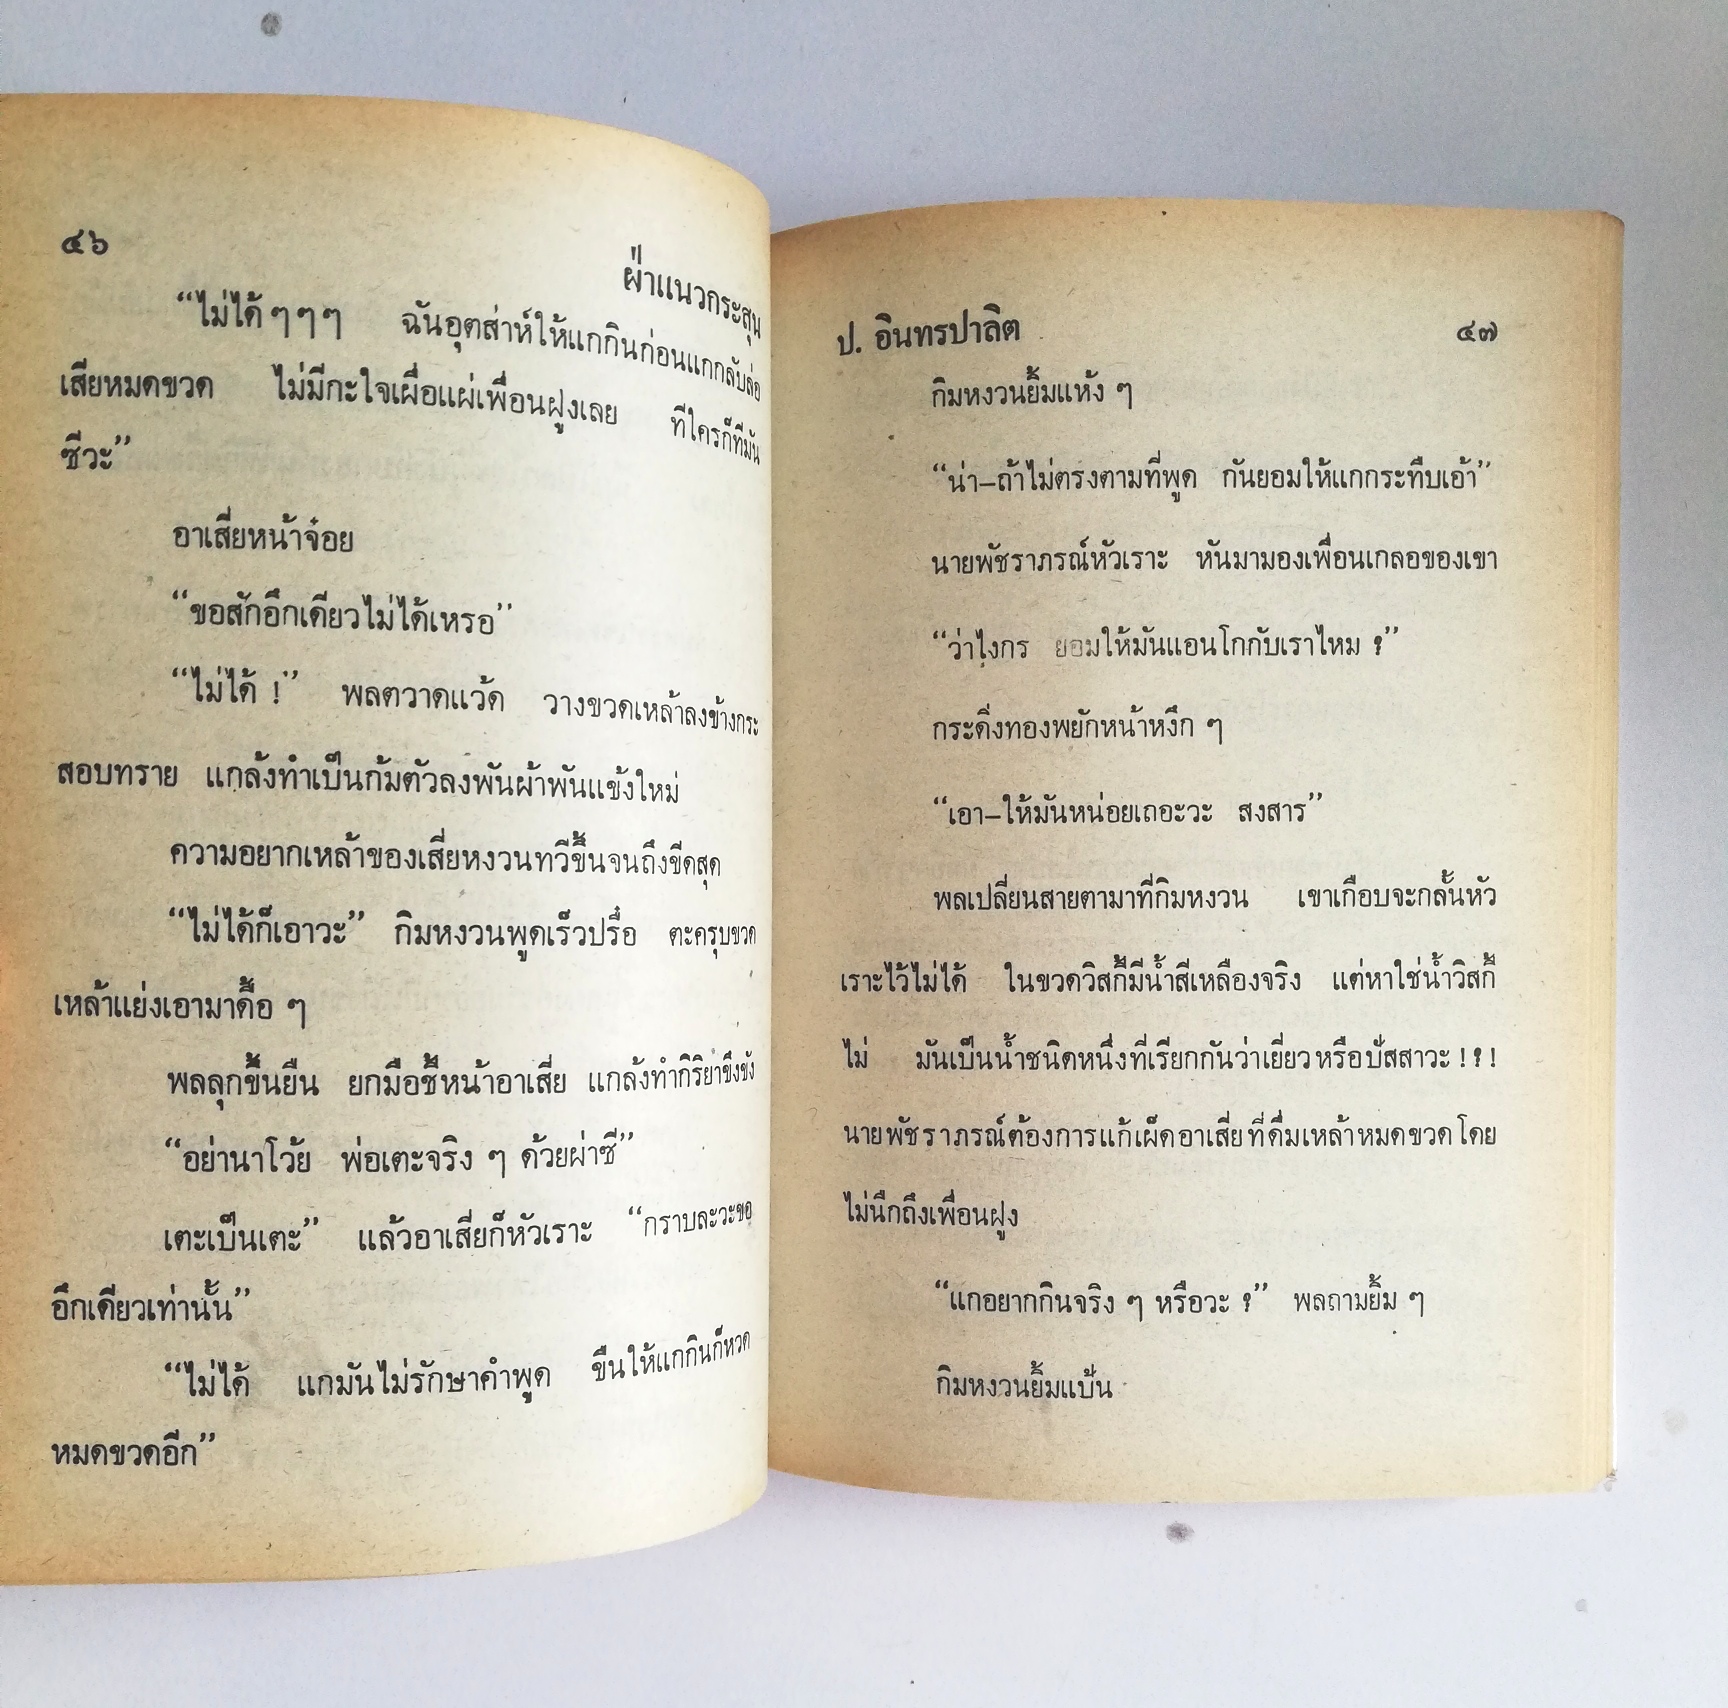 ๔๖
ฝ่าแนวกระสุน
“ไม่ได้ ๆ ๆ ๆ ฉันอุตส่าห์ให้แกกินก่อนแกกลับล่อ
เสียหมดขวด ไม่มีกะใจเผื่อแผ่เพื่อนฝูงเลย ทีใครก็ทีมัน
ซีวะ”
อาเสี่ยหน้าจ๋อย
“ขอสักอึกเดียวไม่ได้เหรอ”
“ไม่ได้ !” พลตวาดแว้ด วางขวดเหล้าลงข้างกระ
สอบทราย แกล้งทำเป็นก้มตัวลงพันผ้าพันแข้งใหม่
ความอยากเหล้าของเสี่ยหงวนทวีขึ้นจนถึงขีดสุด
“ไม่ได้ก็เอาวะ” กิมหงวนพูดเร็วปรื๋อ ตะครุบขวด
เหล้าแย่งเอามาดื้อ ๆ
พลลุกขึ้นยืน ยกมือชี้หน้าอาเสี่ย แกล้งทำกิริยาขึงขัง
“อย่านาโว้ย พ่อเตะจริง ๆ ด้วยผ่าซี”
เตะเป็นเตะ” แล้วอาเสี่ยก็หัวเราะ “กราบละวะขอ
อึกเดียวเท่านั้น”
“ไม่ได้ แกมันไม่รักษาคำพูด ขืนให้แกกินก็หวด
หมดขวดอีก”
ป. อินทรปาลิต
๔๗
กิมหงวนยิ้มแห้ง ๆ
“น่า–ถ้าไม่ตรงตามที่พูด กันยอมให้แกกระทืบเอ้า”
นายพัชราภรณ์หัวเราะ หันมามองเพื่อนเกลอของเขา
“ว่าไงกร ยอมให้มันแอนโกกับเราไหม ?”
กระดิ่งทองพยักหน้าหงึก ๆ
“เอา–ให้มันหน่อยเถอะวะ สงสาร”
พลเปลี่ยนสายตามาที่กิมหงวน เขาเกือบจะกลั้นหัว
เราะไว้ไม่ได้ ในขวดวิสกี้มีน้ำสีเหลืองจริง แต่หาใช่น้ำวิสกี้
ไม่ มันเป็นน้ำชนิดหนึ่งที่เรียกกันว่าเยี่ยวหรือปัสสาวะ ! ? !
นายพัชราภรณ์ต้องการแก้เผ็ดอาเสี่ยที่ดื่มเหล้าหมดขวดโดย
ไม่นึกถึงเพื่อนฝูง
“แกอยากกินจริง ๆ หรือวะ ?” พลถามยิ้ม ๆ
กิมหงวนยิ้มแป้น